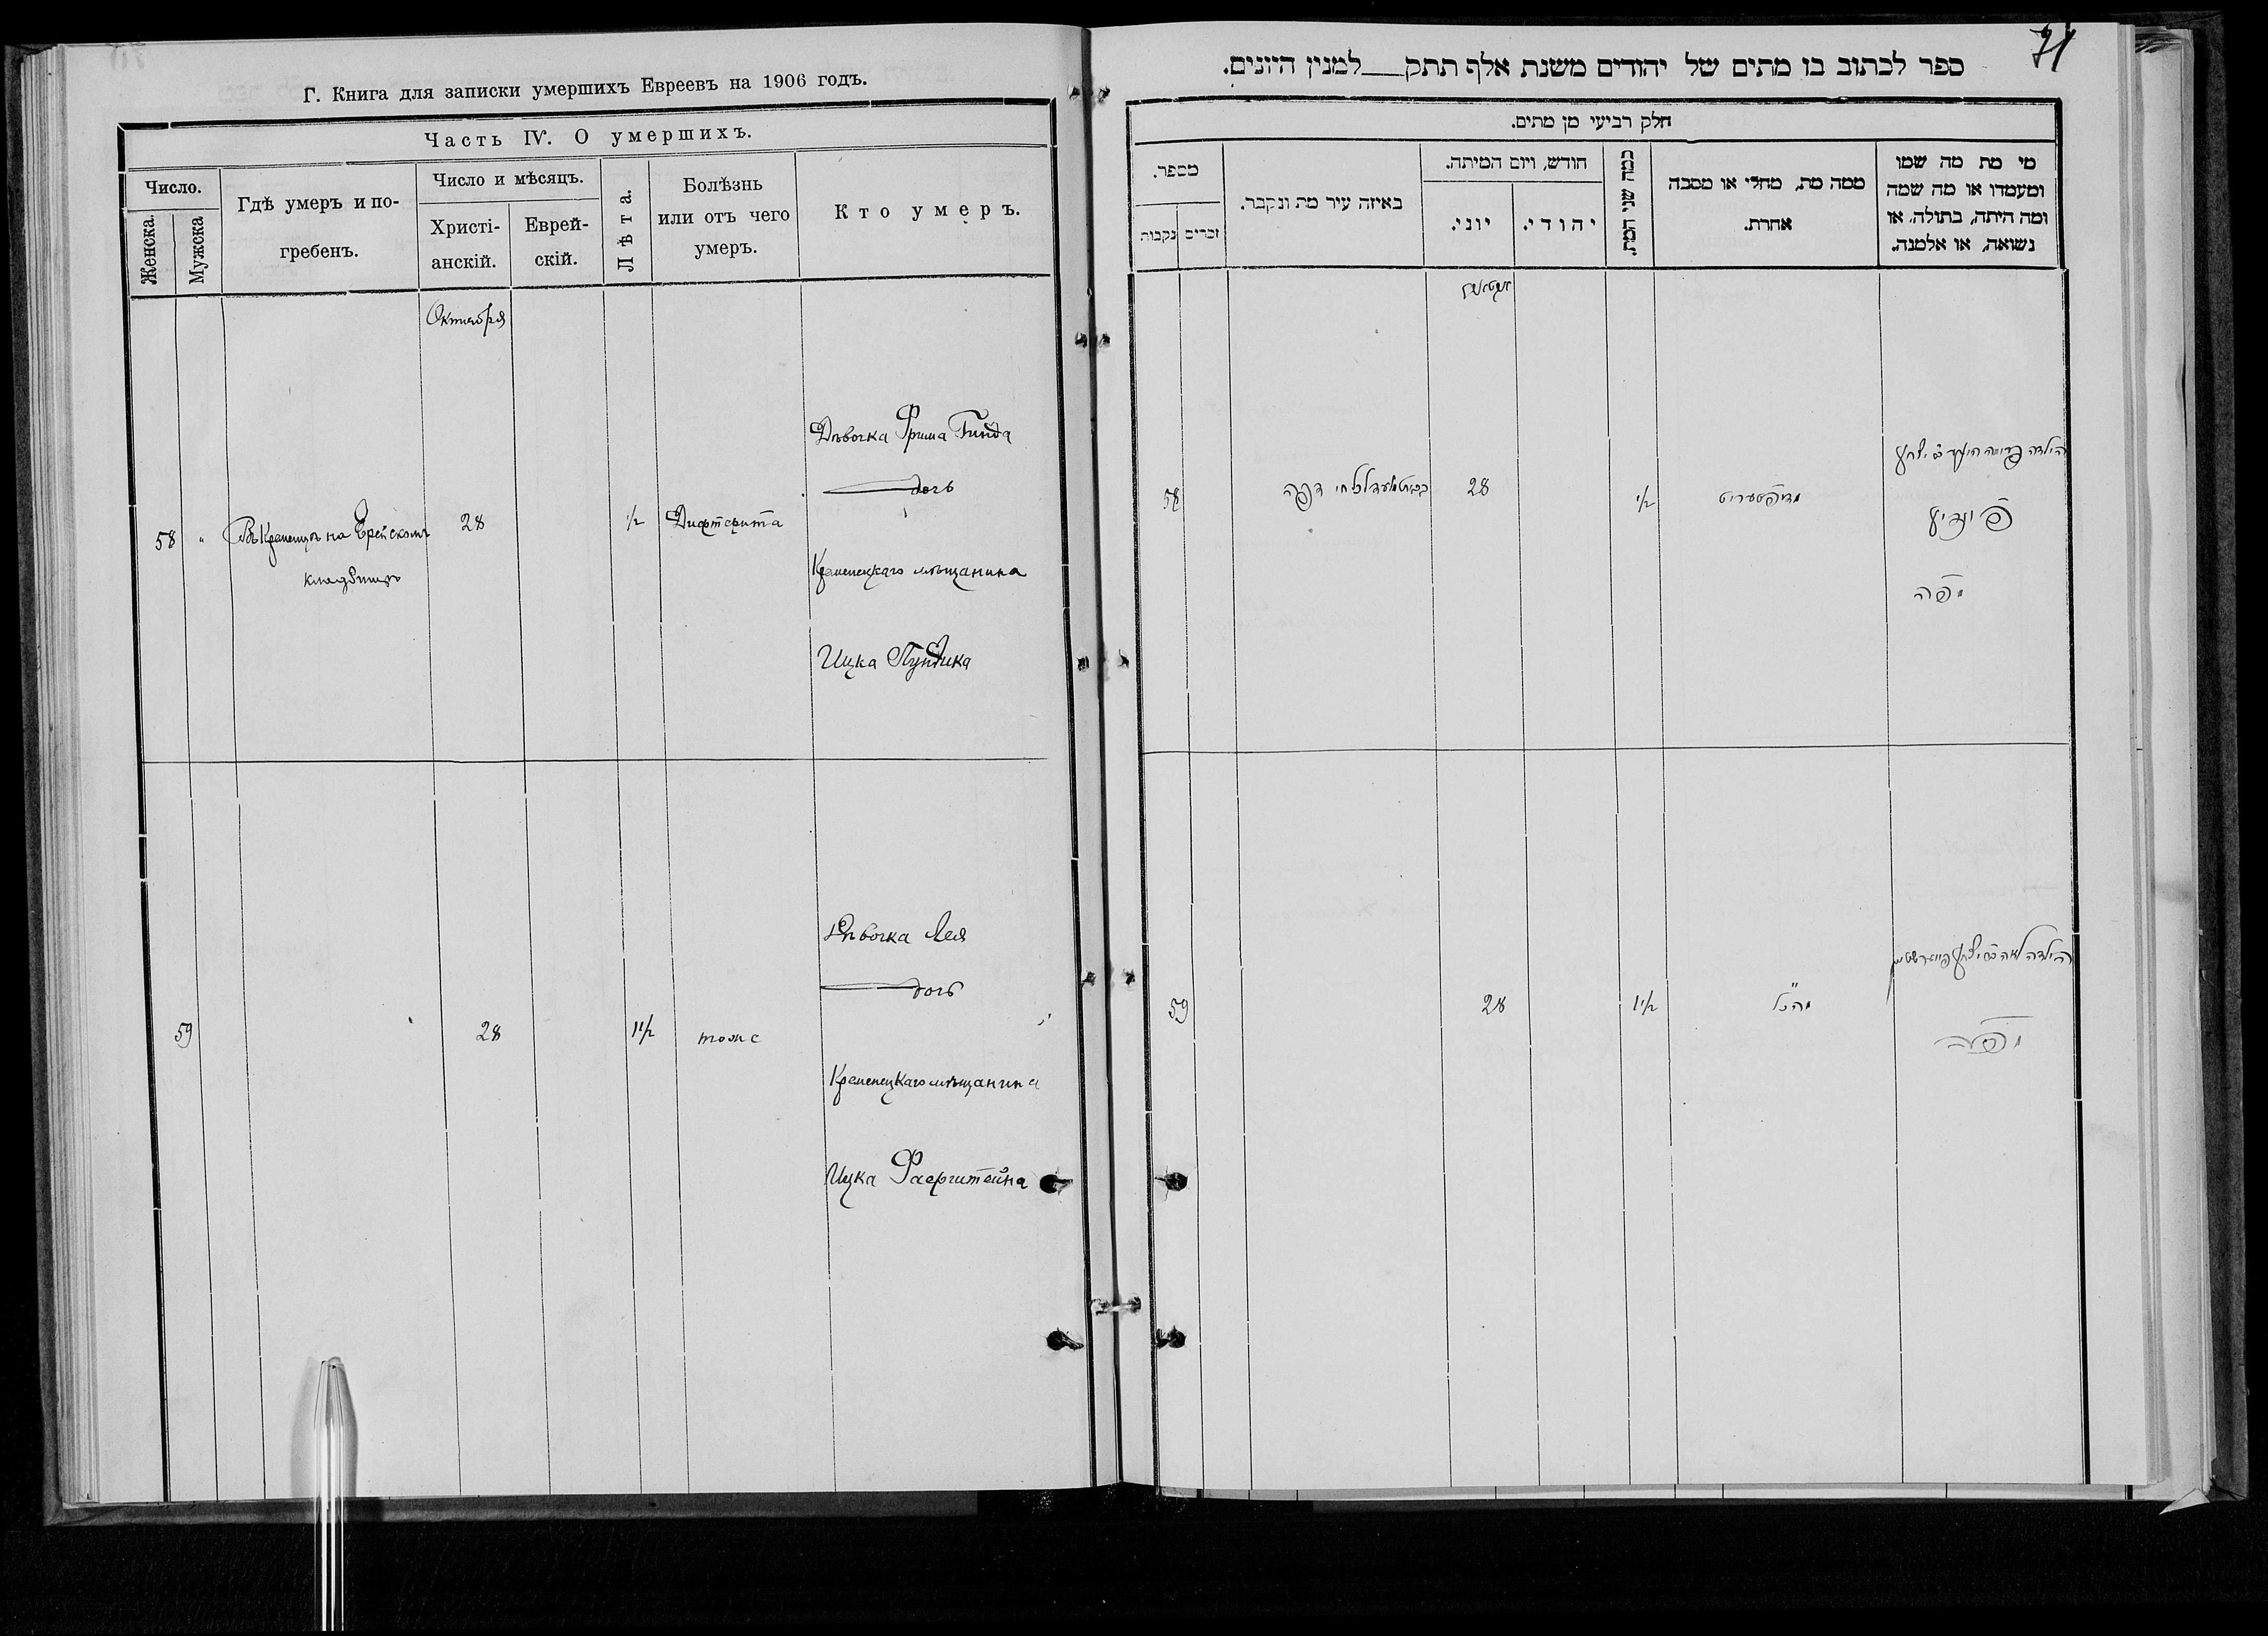 Г. Книга для записки умершихъ Евреевъ на 1906 годъ.
Часть IV. О умершихъ.
Число.
Женска.
Мужска
Гдѣ умеръ и по-
гребенъ.
Число и мѣсяцъ.
Христі-
анскій.
Еврей-
скій.
Лѣта.
Болѣзнь
или отъ чего
умеръ.
Кто умеръ.
Октября
58 "
Въ Кременцѣ на Еврейскомъ
кладбищѣ
28
1/2
Дифтерита
Дѣвочка Фрима Гинда
дочь
Кременецкаго мѣщанина
Ицка Пундика
59
28
1 1/2
тоже
Дѣвочка Лея
дочь
Кременецкаго мѣщанина
Ицка Фаерштейна
71
ספר לכתוב בו מתים של יהודים משנת אלף תתק למנין היונים.
חלק רביעי מן מתים.
מי מת מה שמו
ומעמדו או מה שמה
ומה היתה, בתולה, או
נשואה, או אלמנה.
ממה מת, מחלי או מסבה
אחרת.
כמה שני המת.
חודש, ויום המיתה.
יהודי.
יוני.
באיזה עיר מת ונקבר.
מספר.
זכרים
נקבות
הילדה פרימה הינד בת יצחק
פינדיק
מפה
1/2
28
58
הילדה לאה בת יצחק פייערשטיין
מפה
כנ"ל
1 1/2
28
59